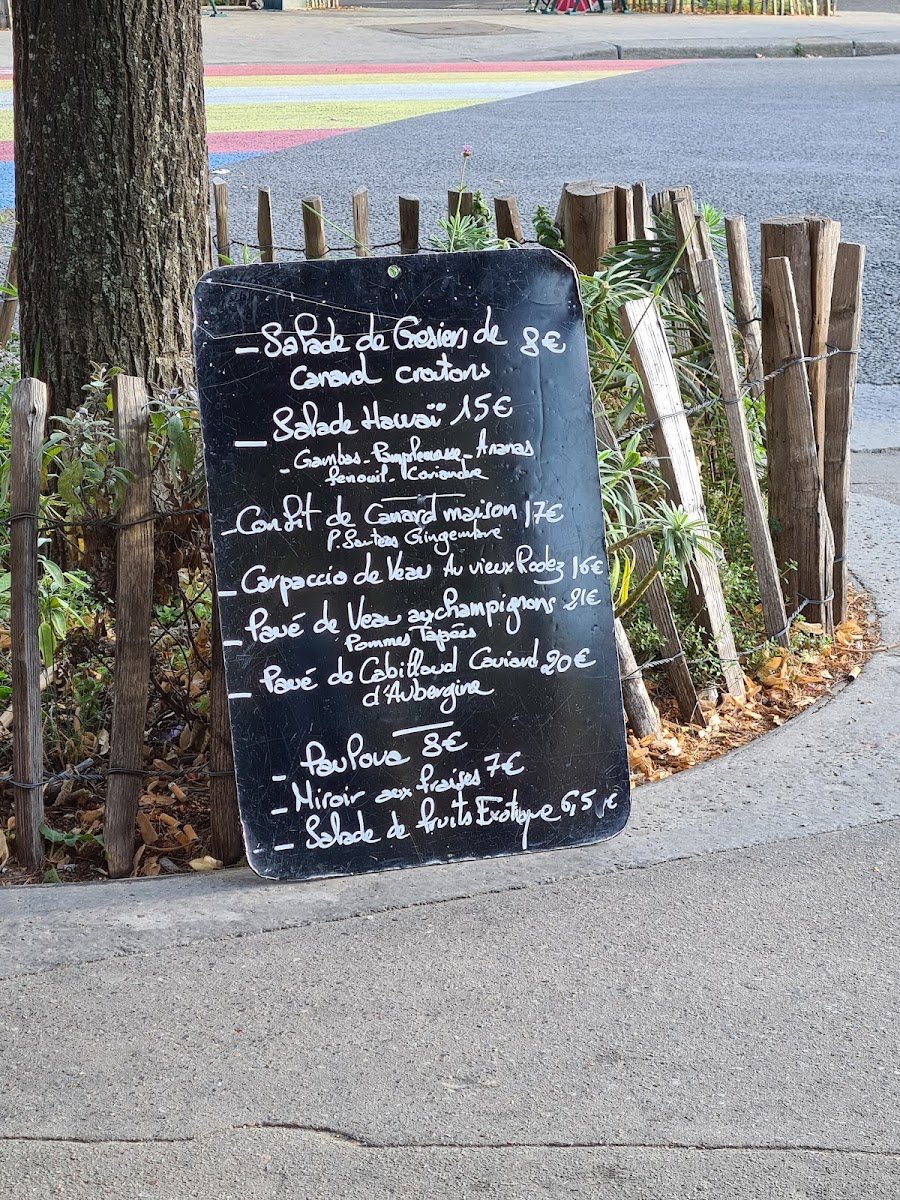 - Salade de Gesiers de 8€
Canard croutons
- Salade Hawaï 15€
- Gambas - Pamplemousse - Ananas
fenouil - Coriandre
- Confit de Canard maison 17€
P. Sautées Gingembre
- Carpaccio de Veau Au vieux Rodez 16€
- Pavé de Veau aux champignons 21€
Pommes Tapées
- Pavé de Cabillaud Caviard 20€
d'Aubergine
- Pavlova 8€
- Miroir aux fraises 7€
- Salade de fruits Exotique 6,5€